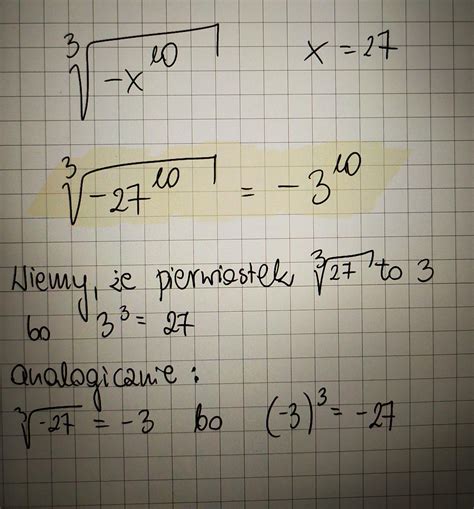 ∛(-x¹⁰) x = 27
∛(-27¹⁰) = -3¹⁰
Wiemy, że pierwiastek ∛27 to 3
bo 3³ = 27
analogicznie :
∛-27 = -3 bo (-3)³ = -27